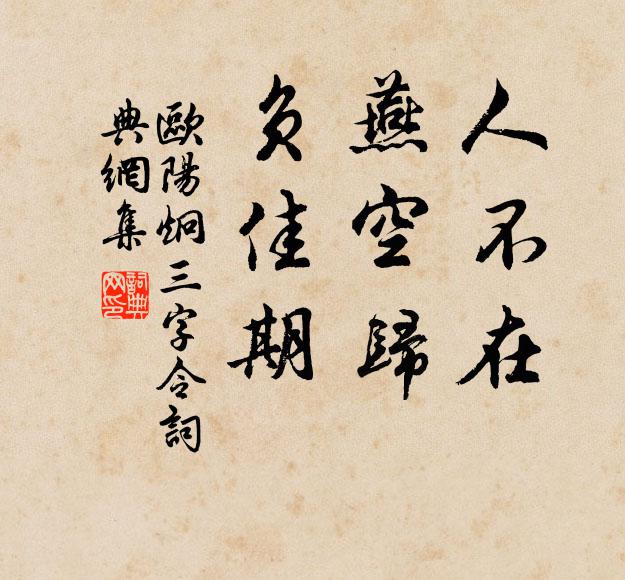 人不在
燕空歸
負佳期
歐陽炯三字令詞
典網集
詞典
网印